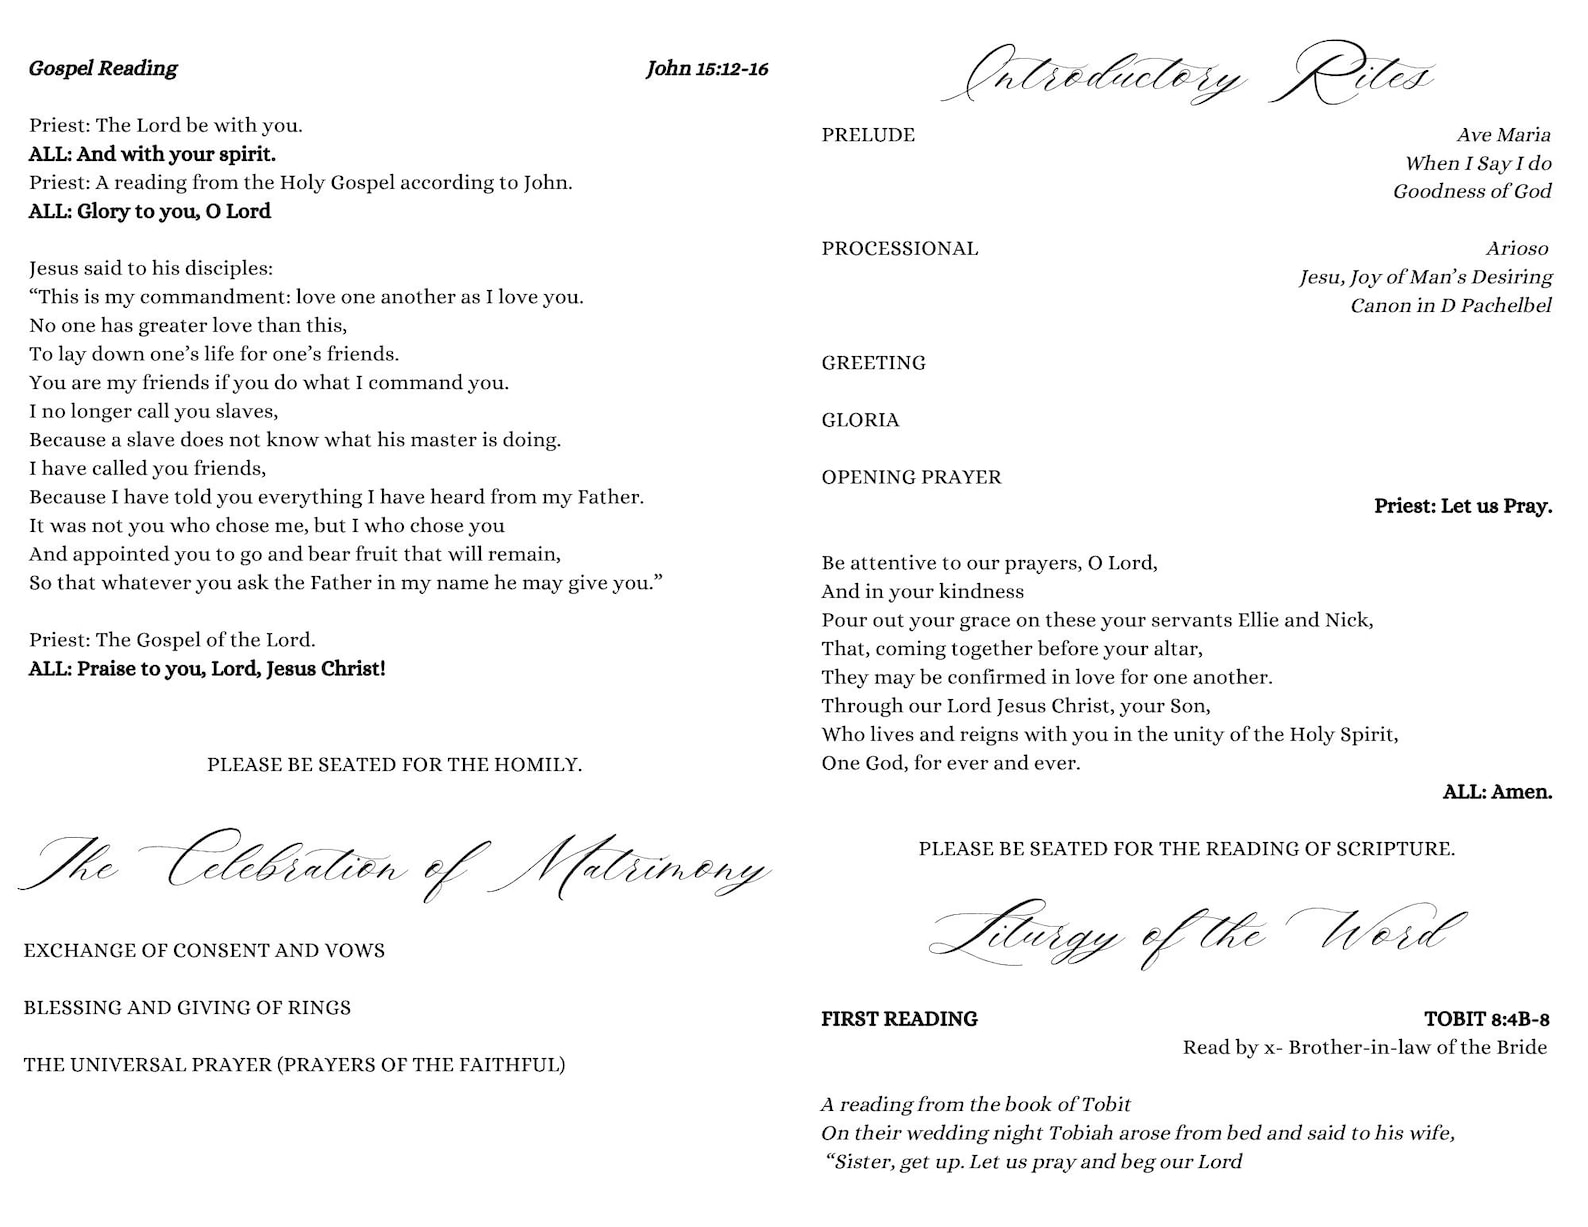 Gospel Reading John 15:12-16
Priest: The Lord be with you.
ALL: And with your spirit.
Priest: A reading from the Holy Gospel according to John.
ALL: Glory to you, O Lord
Jesus said to his disciples:
“This is my commandment: love one another as I love you.
No one has greater love than this,
To lay down one’s life for one’s friends.
You are my friends if you do what I command you.
I no longer call you slaves,
Because a slave does not know what his master is doing.
I have called you friends,
Because I have told you everything I have heard from my Father.
It was not you who chose me, but I who chose you
And appointed you to go and bear fruit that will remain,
So that whatever you ask the Father in my name he may give you.”
Priest: The Gospel of the Lord.
ALL: Praise to you, Lord, Jesus Christ!
PLEASE BE SEATED FOR THE HOMILY.
The Celebration of Matrimony
EXCHANGE OF CONSENT AND VOWS
BLESSING AND GIVING OF RINGS
THE UNIVERSAL PRAYER (PRAYERS OF THE FAITHFUL)
Introductory Rites
PRELUDE Ave Maria
When I Say I do
Goodness of God
PROCESSIONAL Arioso
Jesu, Joy of Man’s Desiring
Canon in D Pachelbel
GREETING
GLORIA
OPENING PRAYER
Priest: Let us Pray.
Be attentive to our prayers, O Lord,
And in your kindness
Pour out your grace on these your servants Ellie and Nick,
That, coming together before your altar,
They may be confirmed in love for one another.
Through our Lord Jesus Christ, your Son,
Who lives and reigns with you in the unity of the Holy Spirit,
One God, for ever and ever.
ALL: Amen.
PLEASE BE SEATED FOR THE READING OF SCRIPTURE.
Liturgy of the Word
FIRST READING TOBIT 8:4B-8
Read by x- Brother-in-law of the Bride
A reading from the book of Tobit
On their wedding night Tobiah arose from bed and said to his wife,
“Sister, get up. Let us pray and beg our Lord